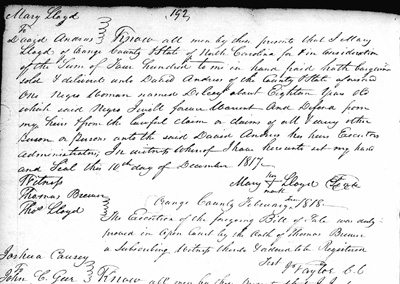 Mary Lloyd 192
To
David Andrews Know all men by these presents that I Mary
Lloyd of Orange County & State of North Carolina for & in Consideration
of the Sum of Four hundred to me in hand paid hath bargained
sold & delivered unto David Andres of the County & State aforesaid
One Negro Woman named about Eighteen years old
which said Negro I will forever Warrant and Defend from
my heirs & from the lawful claim or claims of all & every other
Person or persons unto the said David Andres his heirs Executors
Administrators, In witness Whereof I have hereunto set my hand
and Seal this 10th day of December 1817
Witness Mary her Lloyd Seal
Thomas Brewer mark
Thos Lloyd Orange County February Term 1818
The Execution of the foregoing Bill of Sale was duly
proved in Open Court by the Oath of Thomas Brewer
a Subscribing Witness thereto & ordered to be Registered
Test J Taylor C C
Joshua Causey
To
John C. Geer Know all men by these